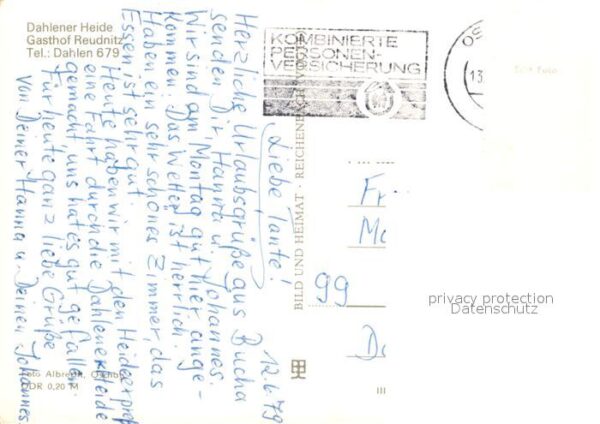 Dahlener Heide
Gasthof Reudnitz
Tel.: Dahlen 679
KOMBINIERTE
PERSONEN-
VERSICHERUNG
13.
12.6.79
Liebe Tante!
Herzliche Urlaubsgrüße aus Bucha
senden Dir Hanna u. Johannes.
Wir sind am Montag gut hier ange-
kommen. Das Wetter ist herrlich.
Haben ein sehr schönes Zimmer, das
Essen ist sehr gut.
Heute haben wir mit den Heideexpreß
eine Fahrt durch die Dahlener Heide
gemacht, uns hat es gut gefallen.
Für heute ganz liebe Grüße
von Deiner Hanna u. Deinen Johannes
BILD UND HEIMAT · REICHENBACH
Fr
Ma
99
privacy protection
Datenschutz
Foto Albrecht, Oschatz
DDR 0,20 M
III